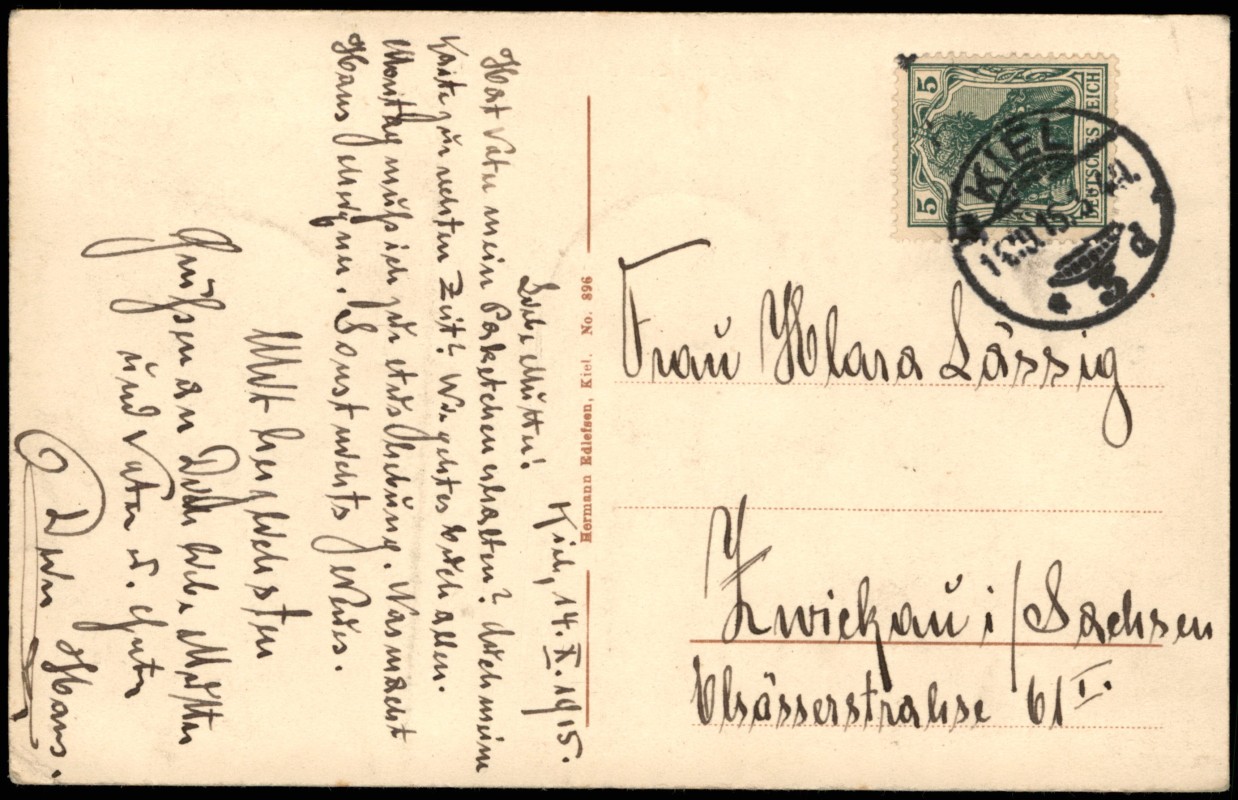 Kiel, 14.X.1915.
Liebe Mutter!
Hat Vater mein Paketchen erhalten? Auch meine
Karte zur rechten Zeit? Wie geht es Euch allen.
Montag muß ich zu etr Übung. Was macht
Hans Sonst nichts Neues.
Mit herzlichsten
Grüßen an Dich liebe Mutter
und Vater u.
Dein Hans.
Hermann Edlefsen, Kiel. No. 896
5 5
DEUTSCHES REICH
KIEL
14.10.15
Frau Klara Lässig
Zwickau i/Sachsen
Elsässerstrahse 61 I.